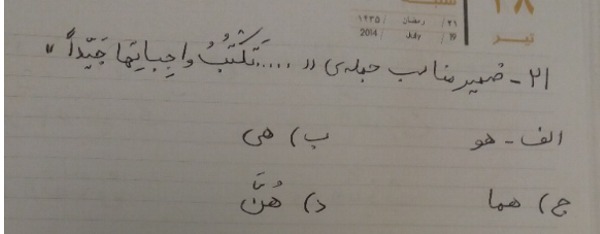 ۲۸
تیر
۲۱ / رمضان / ۱۴۳۵
2014 / July / 19
۲۱- ضمیر مناسب جمله‌ی « .....تَکْتُبُ واجِباتِها جَیِّداً »
الف - هو ب) هی
ج) هما د) هُنَّ